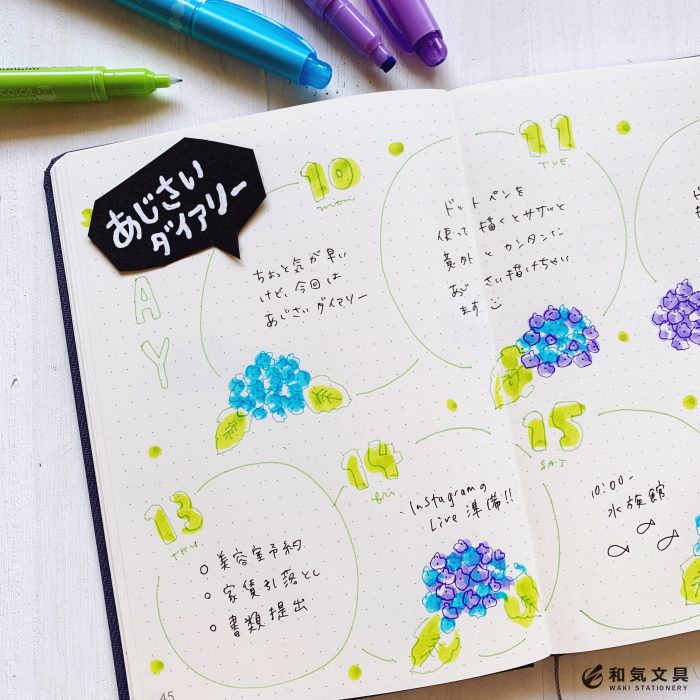 COLOR
あじさい
ダイアリー
AY
10
mon
ちょっと気が早い
けど、今回は
あじさいダイアリー
11
TUE
ドットペンを
使って描くとササッと
意外とカンタンに
あじさい描けちゃい
ます
13
THU
美容室予約
家賃引落とし
書類提出
14
fri
Instagramの
Live準備!!
15
SAT
10:00-
水族館
45
和気文具
WAKI STATIONERY